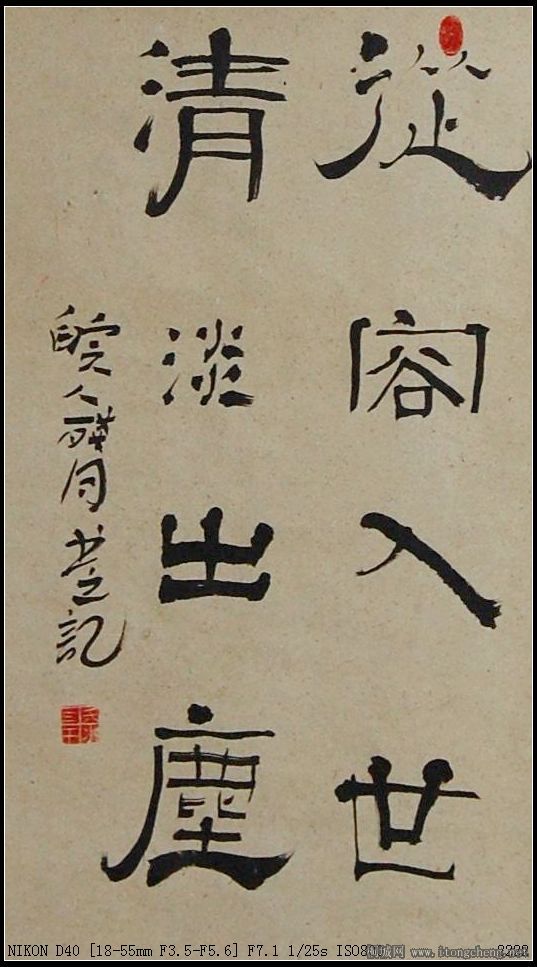 從容入世
清淡出塵
NIKON D40 [18-55mm F3.5-F5.6] F7.1 1/25s
www.itongcheng.net